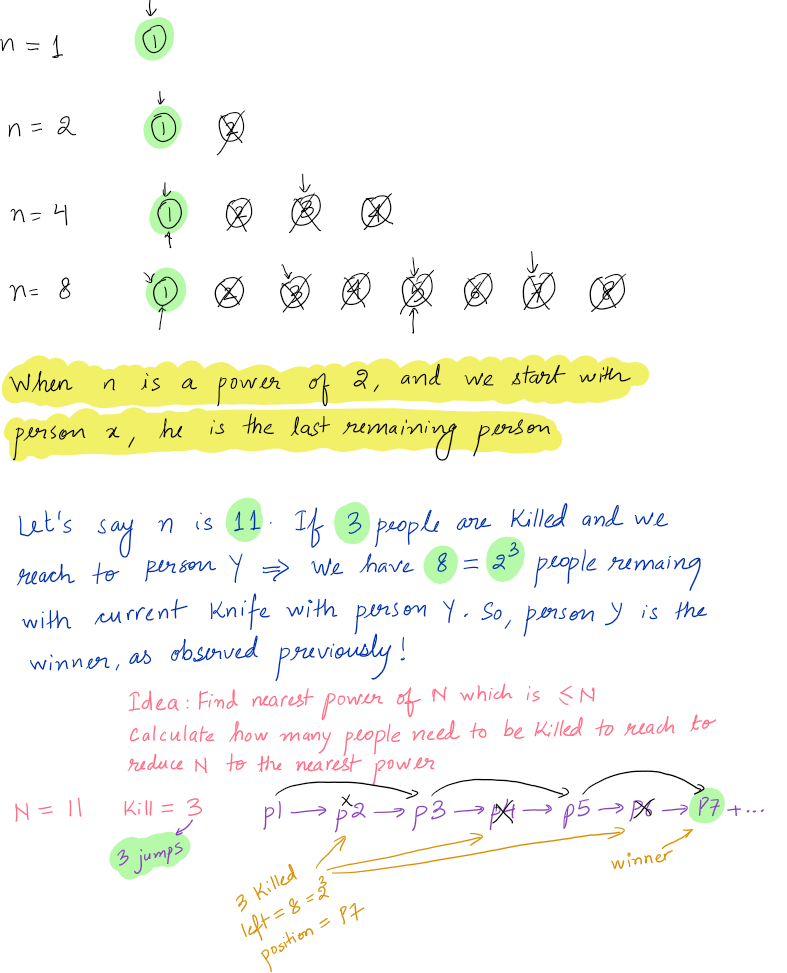 n = 1 1
n = 2 1 2
n = 4 1 2 3 4
n = 8 1 2 3 4 5 6 7 8
When n is a power of 2, and we start with
person x, he is the last remaining person
Let's say n is 11. If 3 people are Killed and we
reach to person Y ⇒ we have 8 = 2³ people remaing
with current Knife with person Y. So, person Y is the
winner, as observed previously!
Idea: Find nearest power of N which is ≤ N
Calculate how many people need to be Killed to reach to
reduce N to the nearest power
N = 11 Kill = 3 p1 → p2 → p3 → p4 → p5 → p6 → P7 + ...
3 jumps
winner
3 Killed
left = 8 = 2³
position = P7